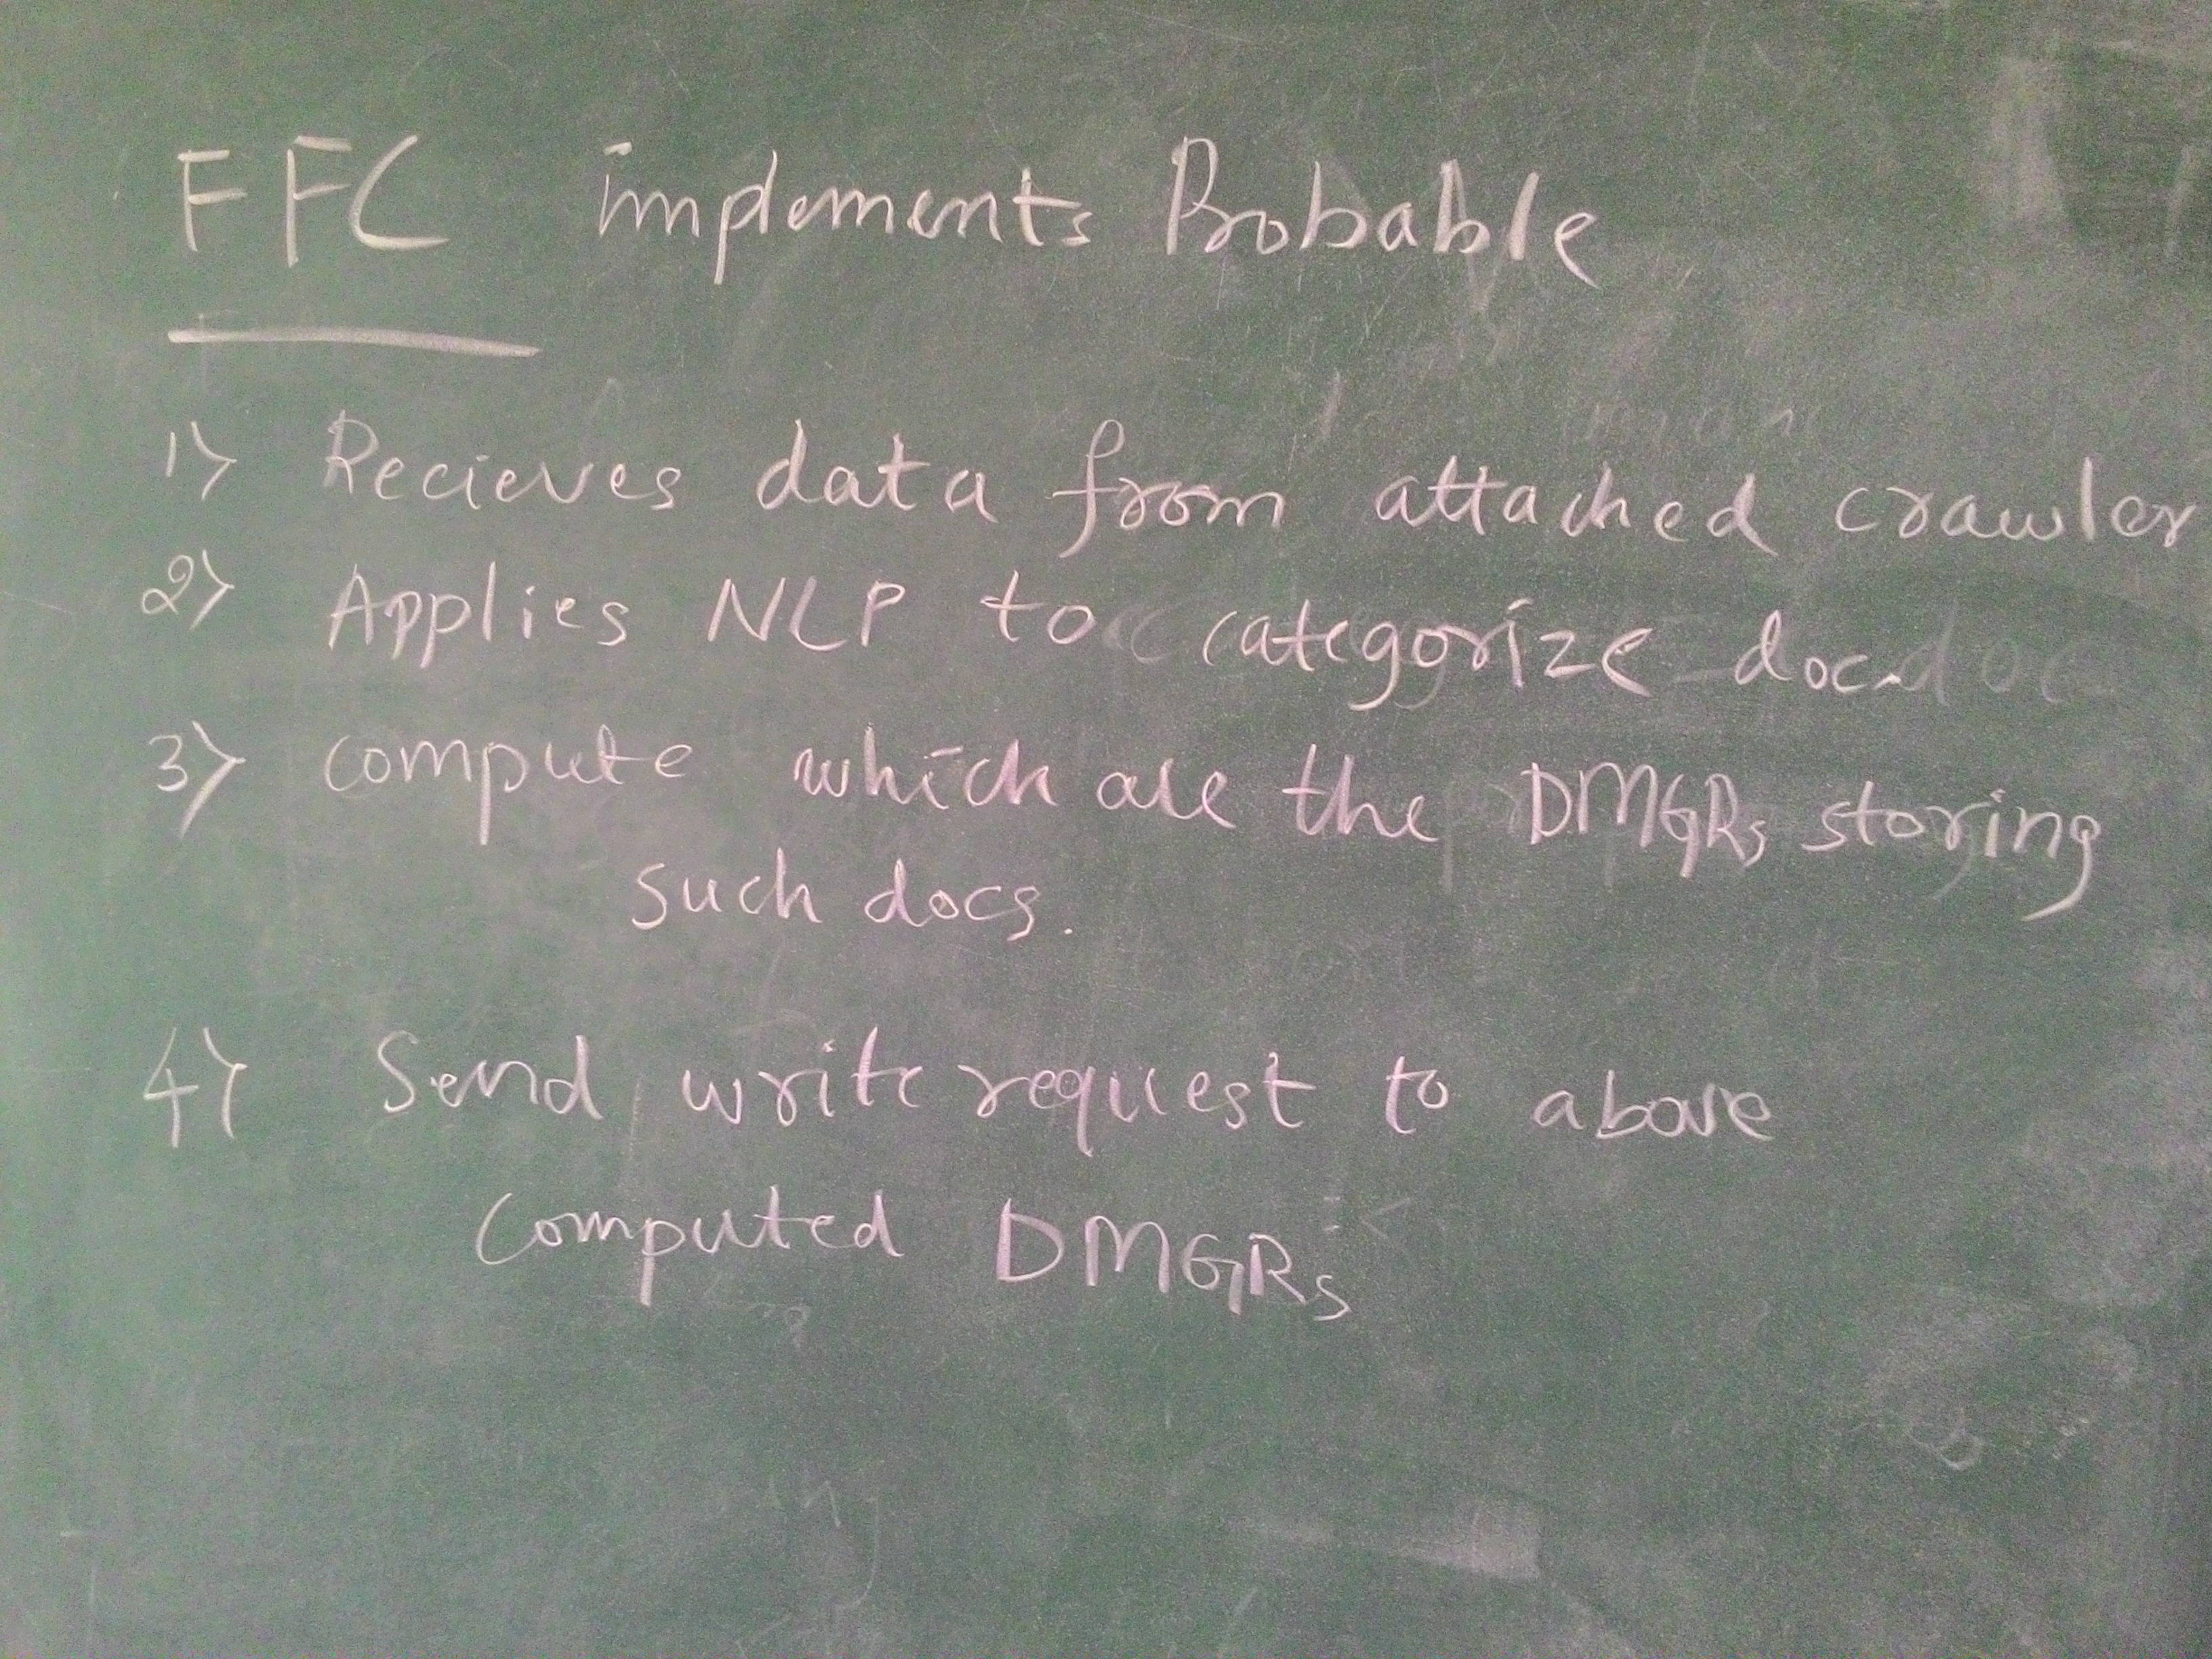 FFC implements Probable
1> Recieves data from attached crawler
2> Applies NLP to categorize doc.
3> compute which are the DMGRs storing
such docs.
4> Send write request to above
computed DMGRs